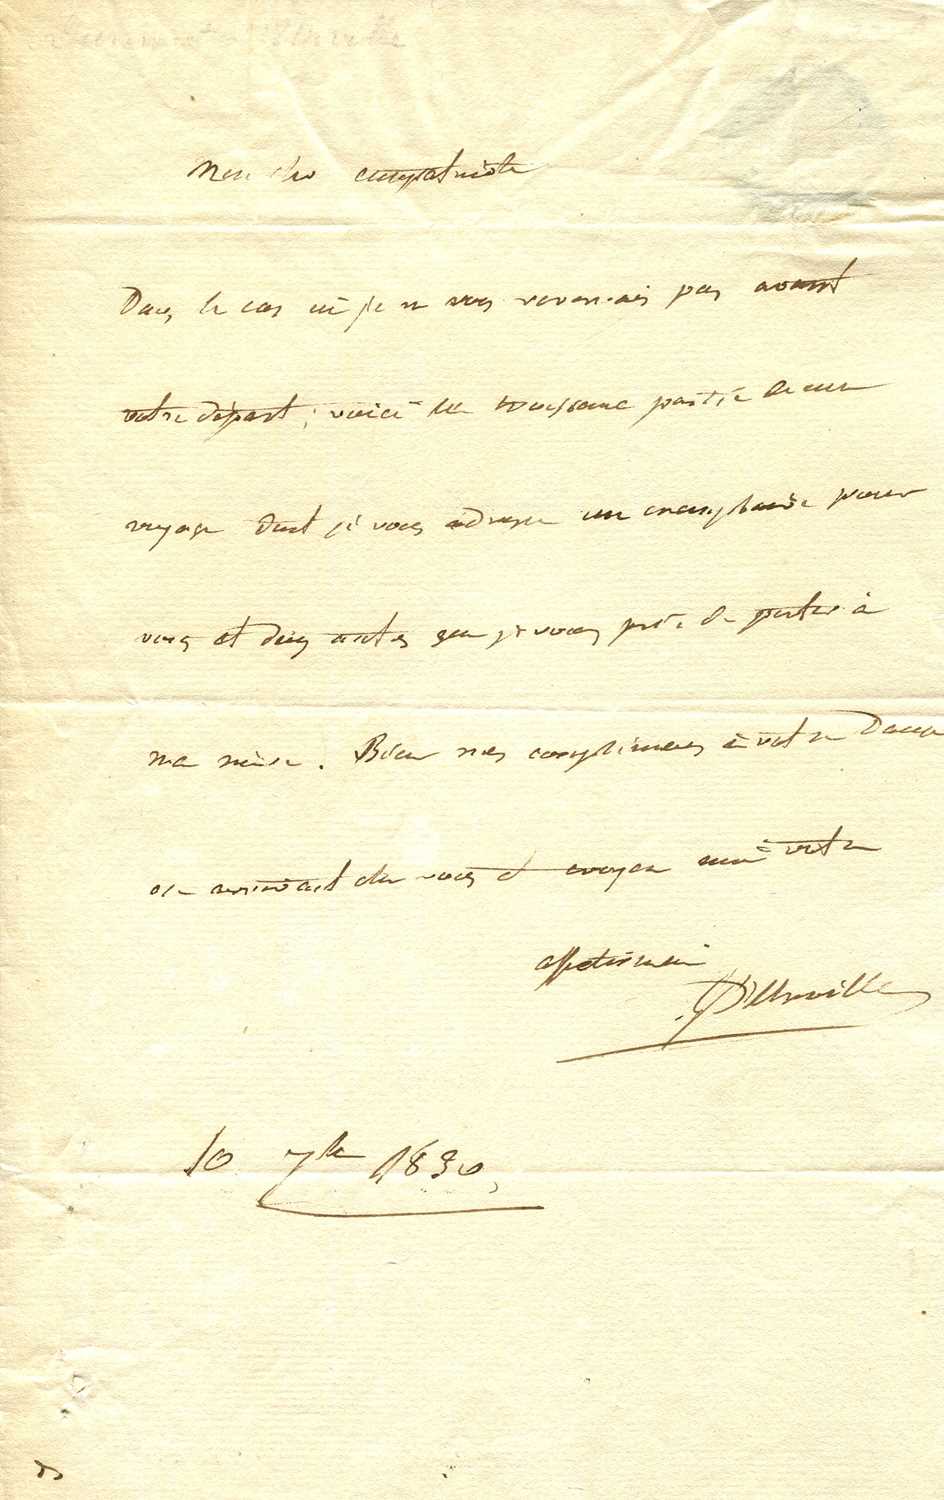 Mon cher compatriote
Dans le cas où je ne vous reverrais pas avant
votre départ, voici la troisième partie de mon
voyage dont je vous adresse un exemplaire pour
vous et deux autres que je vous prie de porter à
ma mère. Bien mes compliments à votre Dame
de vous et croyez moi votre
affectionné
D'Urville
10 7bre 1830